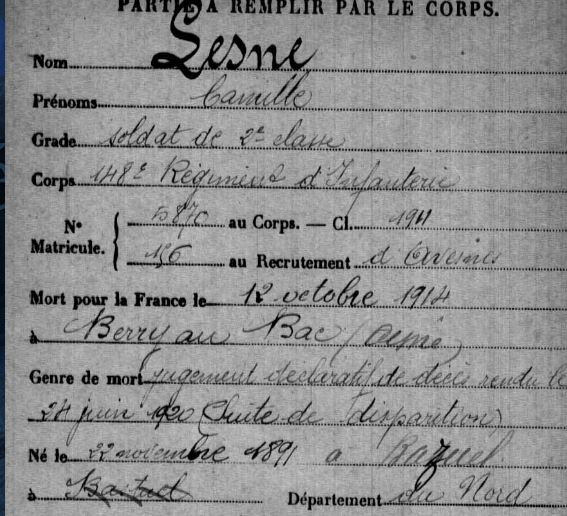 PARTIE A REMPLIR PAR LE CORPS.
Nom Lesne
Prénoms Camille
Grade soldat de 2e classe
Corps 148e Régiment d'Infanterie
N° Matricule. { 5870 au Corps. — Cl. 1911
196 au Recrutement d'Avesnes
Mort pour la France le 12 octobre 1914
à Berry au Bac (Aisne)
Genre de mort jugement déclaratif de décès rendu le
24 juin 1920 (Suite de disparition)
Né le 22 novembre 1891 à
à Département du Nord